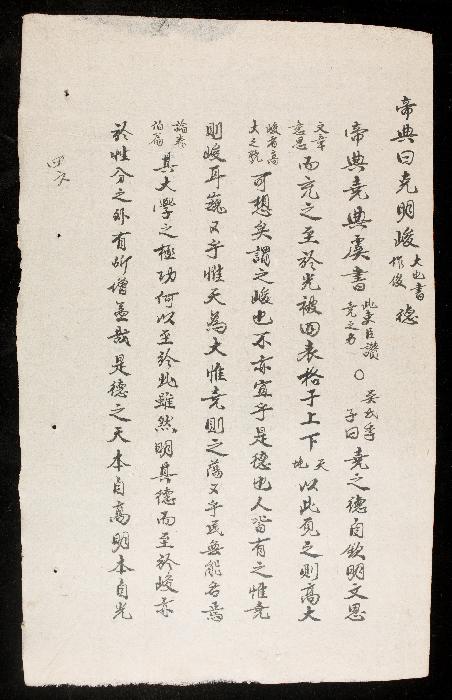 帝典曰克明峻大也書作俊德
帝典堯典虞書此史臣讚堯之書○吳氏季子曰堯之德自欽明文思
文章意思而充之至於光被四表格于上下天地以此見之則高大
峻者高大之號可想矣謂之峻也不亦宜乎是德也人皆有之惟堯
則峻耳巍又乎惟天為大惟堯則之蕩又乎民無能名焉
論泰伯篇其大學之極功何以至於此雖然明其德而至於峻亦
於性分之外有所增益哉是德之天本自高明本自光